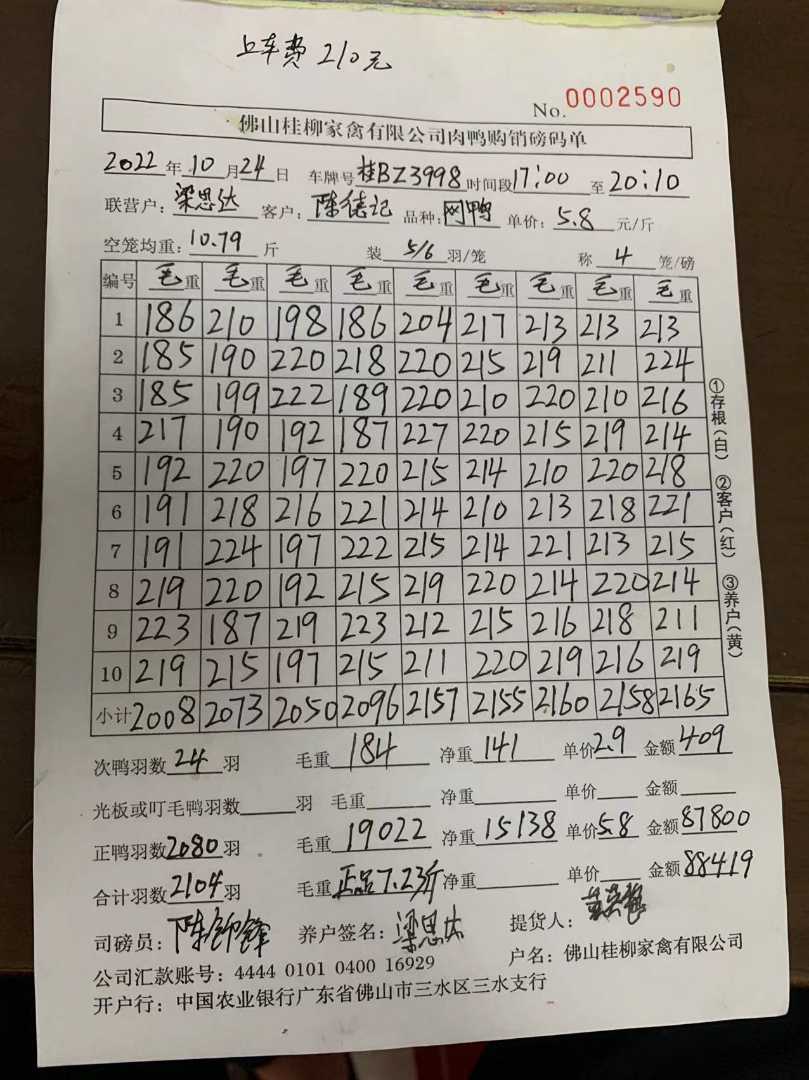 上车费 210元
No. 0002590
佛山桂柳家禽有限公司肉鸭购销磅码单
2022年10月24日 车牌号 桂BZ3998 时间段 17:00 至 20:10
联营户: 梁思达 客户: 陈德记 品种: 网鸭 单价: 5.8 元/斤
空笼均重: 10.79 斤 装 5/6 羽/笼 称 4 笼/磅
编号 毛重 毛重 毛重 毛重 毛重 毛重 毛重 毛重 毛重
1 186 210 198 186 204 217 213 213 213
2 185 190 220 218 220 215 219 211 224
3 185 199 222 189 220 210 220 210 216
4 217 190 192 187 227 220 215 219 214
5 192 220 197 220 215 214 210 220 218
6 191 218 216 221 214 210 213 218 221
7 191 224 197 222 215 214 221 213 215
8 219 220 192 215 219 220 214 220 214
9 223 187 219 223 212 215 216 218 211
10 219 215 197 215 211 220 219 216 219
小计 2008 2073 2050 2096 2157 2155 2160 2158 2165
①存根(白) ②客户(红) ③养户(黄)
次鸭羽数 24 羽 毛重 184 净重 141 单价 2.9 金额 409
光板或叮毛鸭羽数 羽 毛重 净重 单价 金额
正鸭羽数 2080 羽 毛重 19022 净重 15138 单价 5.8 金额 87800
合计羽数 2104 羽 毛重 正品7.23斤 净重 单价 金额 88419
司磅员: 陈 锋 养户签名: 梁思达 提货人:
公司汇款账号: 4444 0101 0400 16929 户名: 佛山桂柳家禽有限公司
开户行: 中国农业银行广东省佛山市三水区三水支行